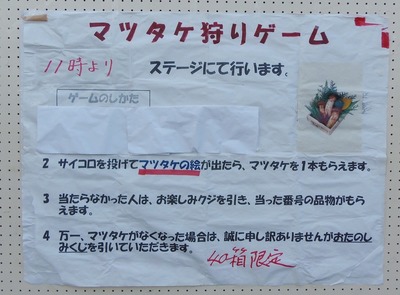 マツタケ狩りゲーム
11時より ステージにて行います。
ゲームのしかた
2 サイコロを投げてマツタケの絵が出たら、マツタケを1本もらえます。
3 当たらなかった人は、お楽しみクジを引き、当った番号の品物がもら
えます。
4 万一、マツタケがなくなった場合は、誠に申し訳ありませんがおたのし
みくじを引いていただきます。
40箱限定